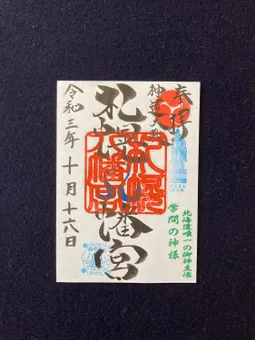 奉拝
神道大教
札幌八幡宮
令和三年十月十六日
北海道唯一の御神
学問の神様